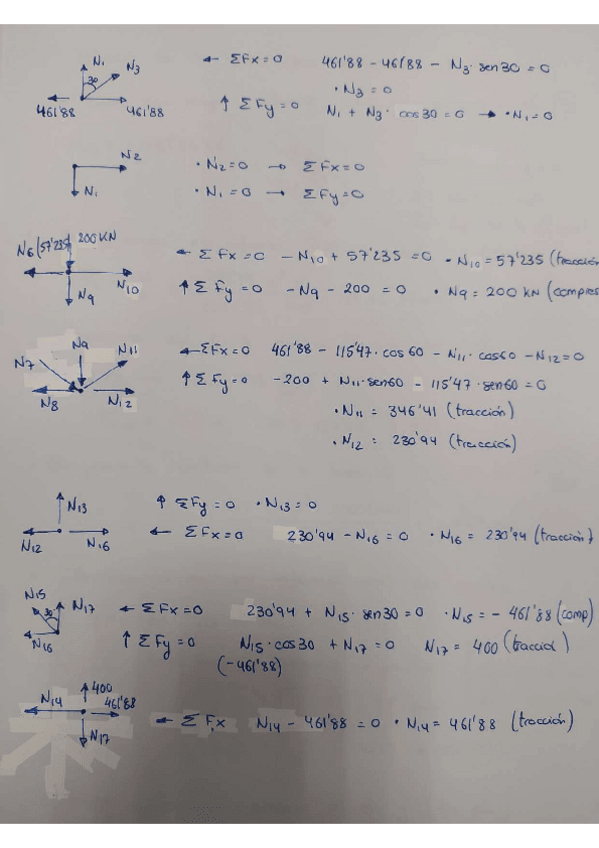 N₁ N₃ 30 461'88 461'88
← ΣFx=0 461'88 - 461'88 - N₃· sen30 = 0
· N₃ = 0
↑ ΣFy = 0 N₁ + N₃· cos30 = 0 → · N₁ = 0
N₂ N₁
· N₂=0 → ΣFx=0
· N₁ = 0 → ΣFy=0
N₆ (57'235) 200 KN N₁₀ N₉
← ΣFx=0 - N₁₀ + 57'235 = 0 · N₁₀ = 57'235 (tracción
↑ Σ Fy = 0 - N₉ - 200 = 0 · N₉ = 200 kN (compres
N₇ N₉ N₁₁ N₈ N₁₂
← ΣFx=0 461'88 - 115'47· cos 60 - N₁₁· cos60 - N₁₂=0
↑ ΣFy=0 -200 + N₁₁·sen60 - 115'47 · sen60 = 0
· N₁₁ = 346'41 (tracción)
· N₁₂ = 230'94 (tracción)
N₁₃ N₁₂ N₁₆
↑ ΣFy = 0 · N₁₃ = 0
← ΣFx=0 230'94 - N₁₆ = 0 · N₁₆ = 230'94 (tracción)
N₁₅ 30 N₁₇ N₁₆
← ΣFx=0 230'94 + N₁₅· sen30 = 0 · N₁₅ = - 461'88 (comp)
↑ ΣFy=0 N₁₅· cos30 + N₁₇ = 0 N₁₇ = 400 (tracció)
(-461'88)
N₁₄ 400 461'88 N₁₇
← ΣFx N₁₄ - 461'88 = 0 · N₁₄ = 461'88 (tracción)